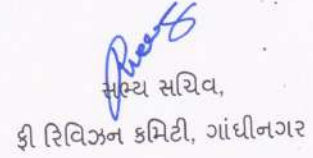 સભ્ય સચિવ,
ફી રિવિઝન કમિટી, ગાંધીનગર